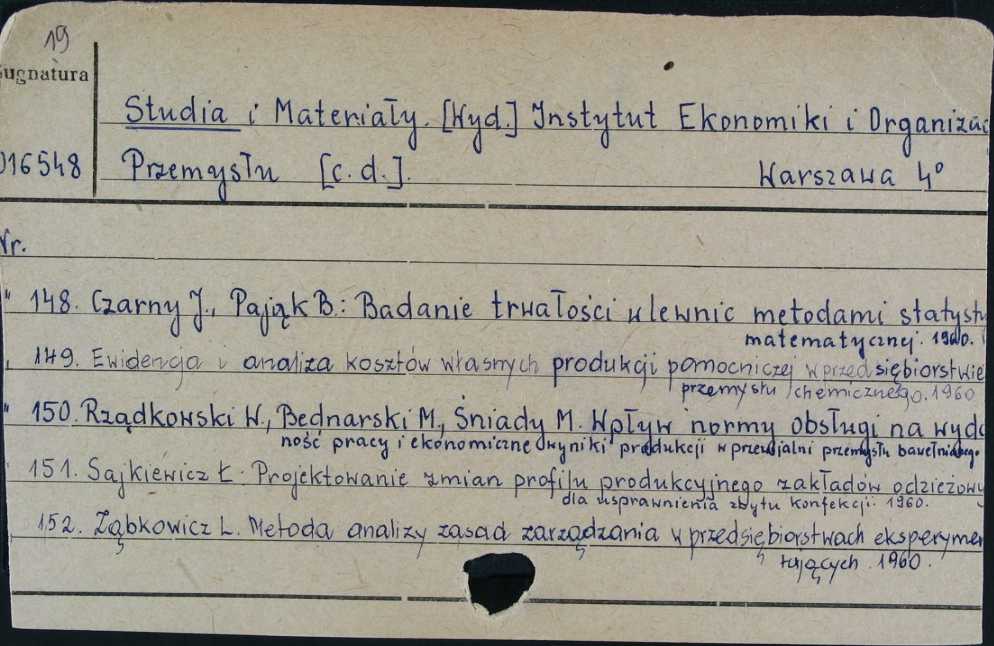 19
Sygnatura
Studia i Materiały. [Wyd.] Instytut Ekonomiki i Organizac
016548 Przemysłu [c.d.]. Warszawa 4°
Nr.
" 148. Czarny J., Pająk B.: Badanie trwałości wlewnic metodami statysty
matematycznej. 1960.
149. Ewidencja i analiza kosztów własnych produkcji pomocniczej w przedsiębiorstwie
przemysłu chemicznego. 1960
" 150. Rządkowski W., Bednarski M., Śniady M. Wpływ normy obsługi na wyda
ność pracy i ekonomiczne wyniki produkcji w przędzialni przemysłu bawełnianego.
151. Sajkiewicz Ł. Projektowanie zmian profilu produkcyjnego zakładów odzieżowy
dla usprawnienia zbytu konfekcji. 1960.
152. Ząbkowicz L. Metoda analizy zasad zarządzania w przedsiębiorstwach eksperymen
tujących. 1960.